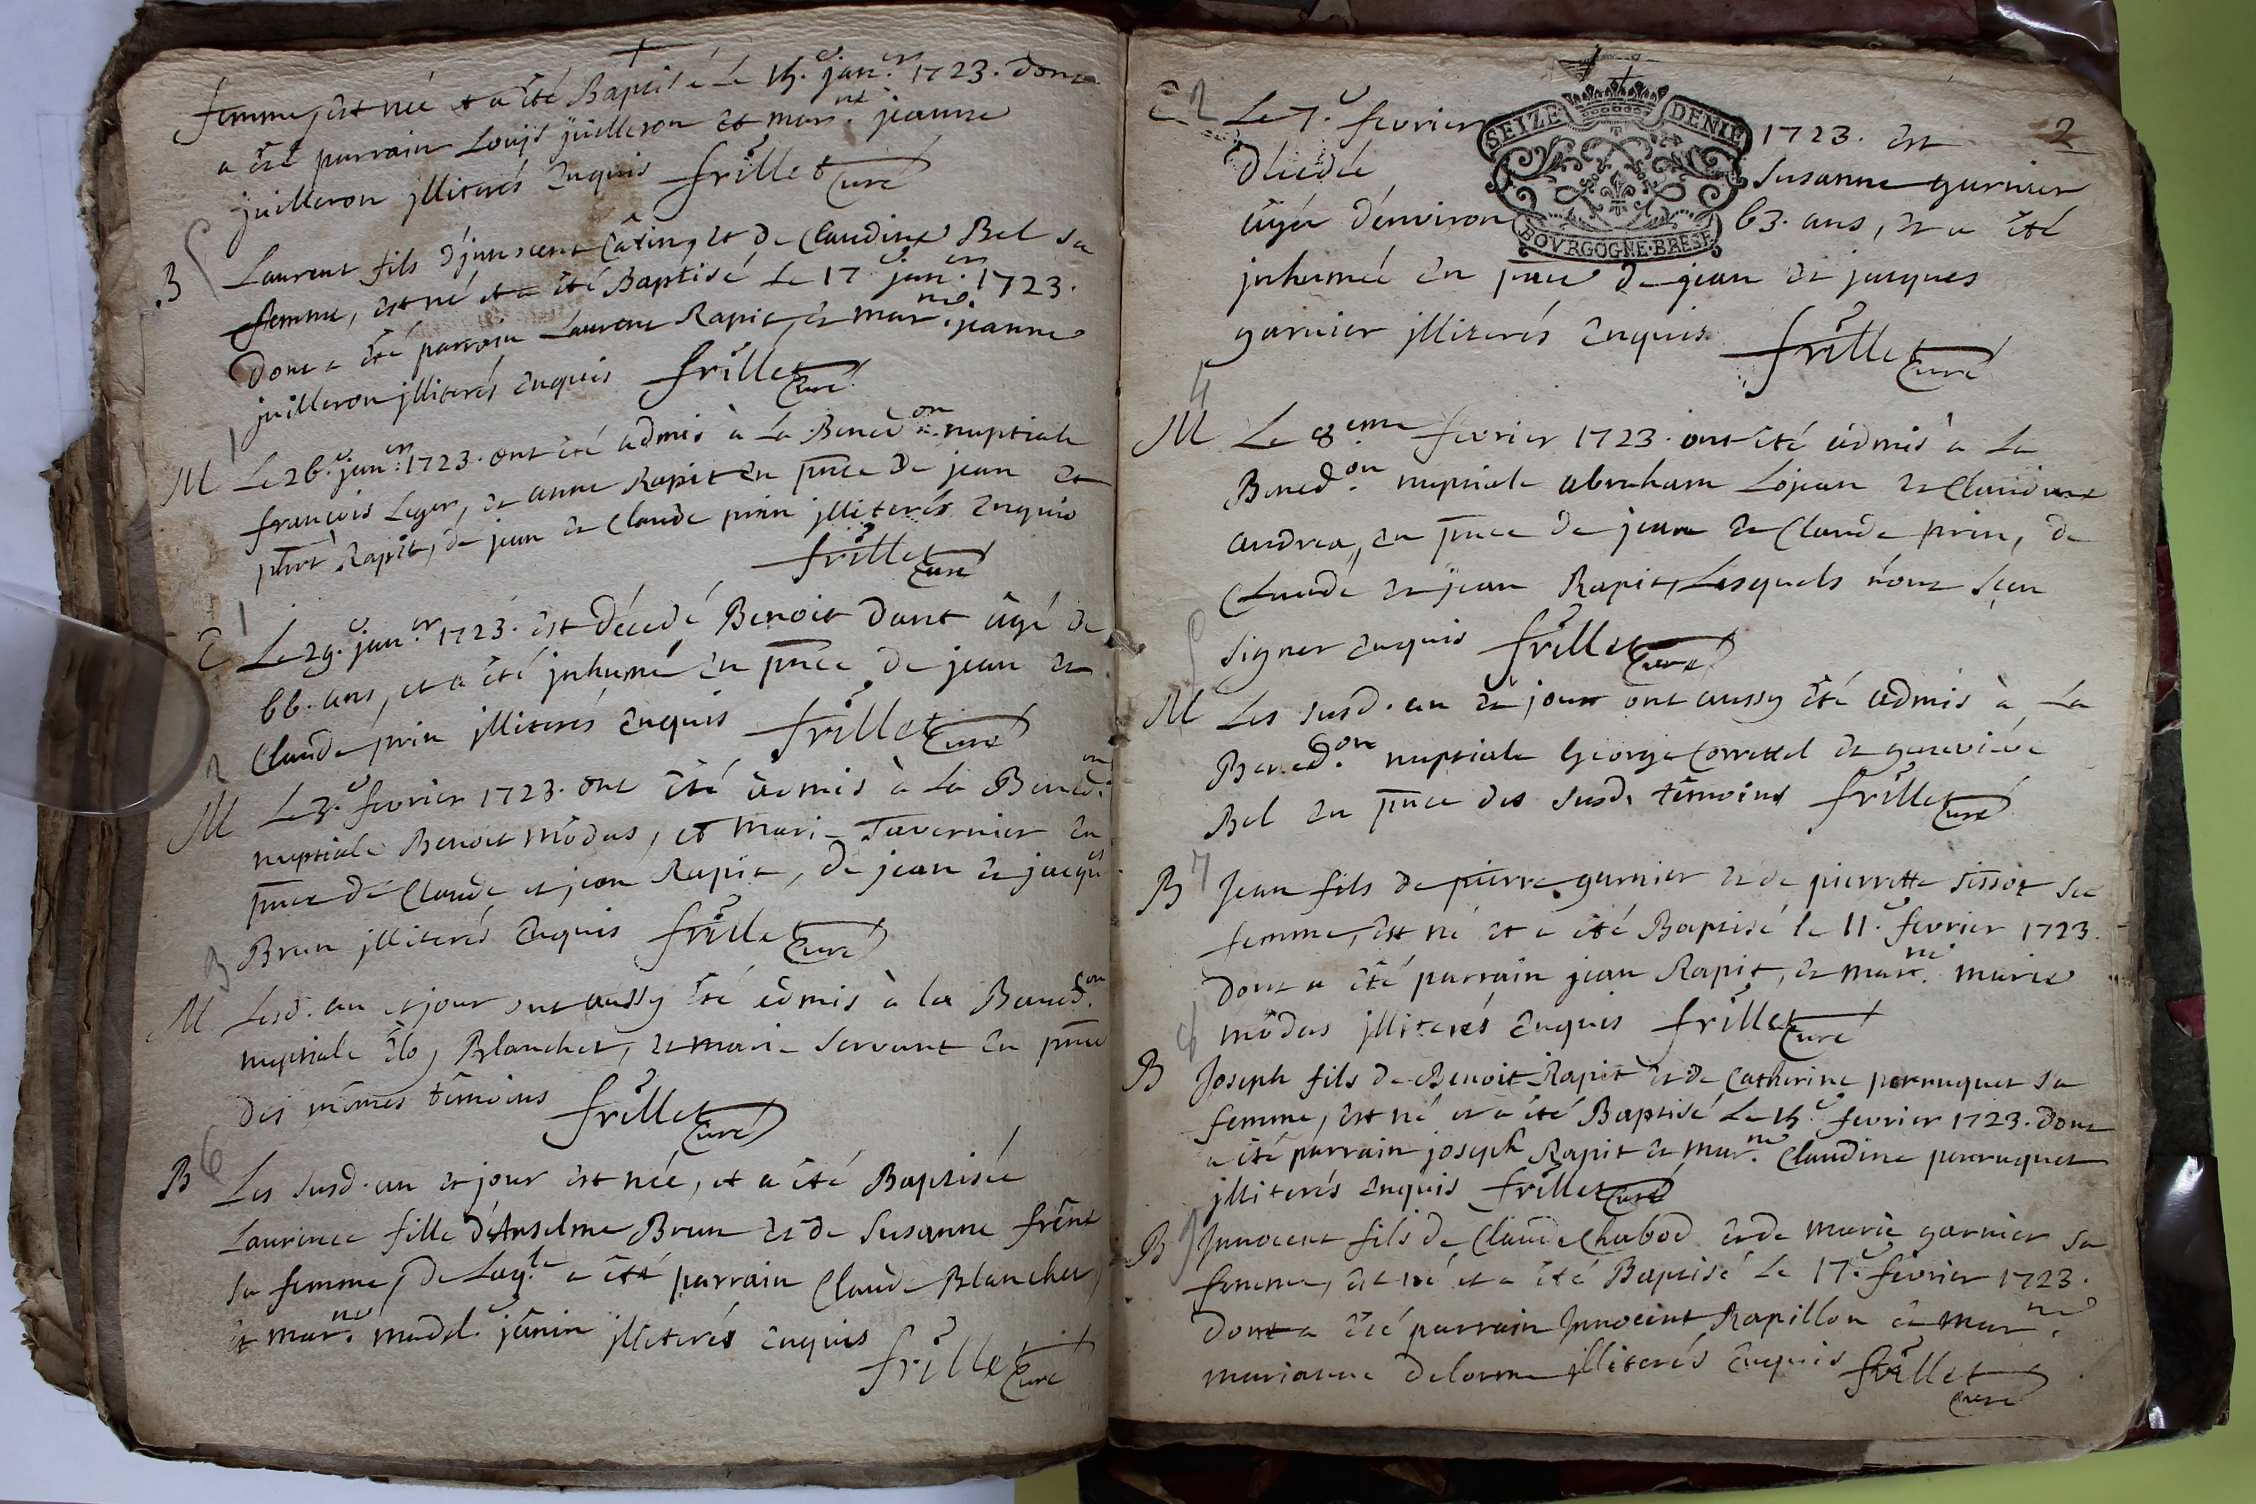 femme, est née et a été Baptisé le 15.e jan.er 1723. dont
a été parrain Louys juilleron et mar.ne jeanne
juilleron jlliterés Enquis frillet Curé
B 5 Laurent fils d'jnnocent Câtin, et de Claudine Bel sa
femme, est né et a été Baptisé Le 17.e jan.er 1723.
Dont a été parrain Laurent Rapit, et mar.ne jeanne
juilleron jlliterés Enquis frillet Curé
M 1 Le 26.e jan.er 1723. ont été admis à La Bened.on nuptiale
françois Leger, et anne Rapit en pnce de jean et
Rapit, de jean et Claude prin jlliterés Enquis
frillet Curé
E 1 Le 29.e jan.er 1723. est décedé Benoit dant âgé de
66. ans, et a été jnhumé en pnce de jean et
Claude prin jlliterés Enquis frillet Curé
M 2 Le 3.e fevrier 1723. ont été admis à La Bened.on
nuptiale Benoit môdas, et marie Tavernier en
pnce de Claude et jean Rapit, de jean et jacques
Brun jlliterés Enquis frillet Curé
M 3 Lesd. an et jour ont aussy été admis à la Bened.on
nuptiale Eloy Blanchet, et marie servant en pnce
des mêmes têmoins frillet Curé
B 6 Les susd. an et jour est née, et a été Baptisée
Laurence fille d'Anselme Brun et de Susanne frêne
sa femme, de Laq.le a été parrain Claude Blanchet,
et mar.ne madel. jânin jlliterés Enquis
frillet Curé
2
SEIZE DENIE
BOVRGOGNE·BRESE
E 2 Le 7.e fevrier 1723. est
décedée Susanne garnier
âgée d'environ 63. ans, et a été
jnhumée en pnce de jean et jacques
garnier jlliterés Enquis frillet Curé
M 4 Le 8.eme fevrier 1723. ont été admis à La
Bened.on nuptiale abraham Lojean et Claudine
andrea, en pnce de jean et Claude prin, de
Claude et jean Rapit, Lesquels n'ont sçeu
signer enquis frillet Curé
M 5 Les susd. an et jour ont aussy été admis à La
Bened.on nuptiale George Correttel et genevieve
Bel en pnce des susd. têmoins frillet Curé
B 7 Jean fils de pierre garnier et de pierrette sissot sa
femme, est né et a été Baptisé le 11.e fevrier 1723.
dont a été parrain jean Rapit, et mar.ne marie
môdas jlliterés Enquis frillet Curé
B 8 Joseph fils de Benoit Rapit et de Catherine perruquet sa
femme, est né et a été Baptisé Le 15.e fevrier 1723. dont
a été parrain joseph Rapit et mar.ne Claudine perruquet
jlliterés Enquis frillet Curé
B 9 Jnnocent fils de Claude Chabod et de marie garnier sa
femme, est né et a été Baptisé Le 17.e fevrier 1723.
Dont a été parrain Jnnocent Rapillon et mar.ne
marianne delorme jlliterés Enquis frillet
Curé